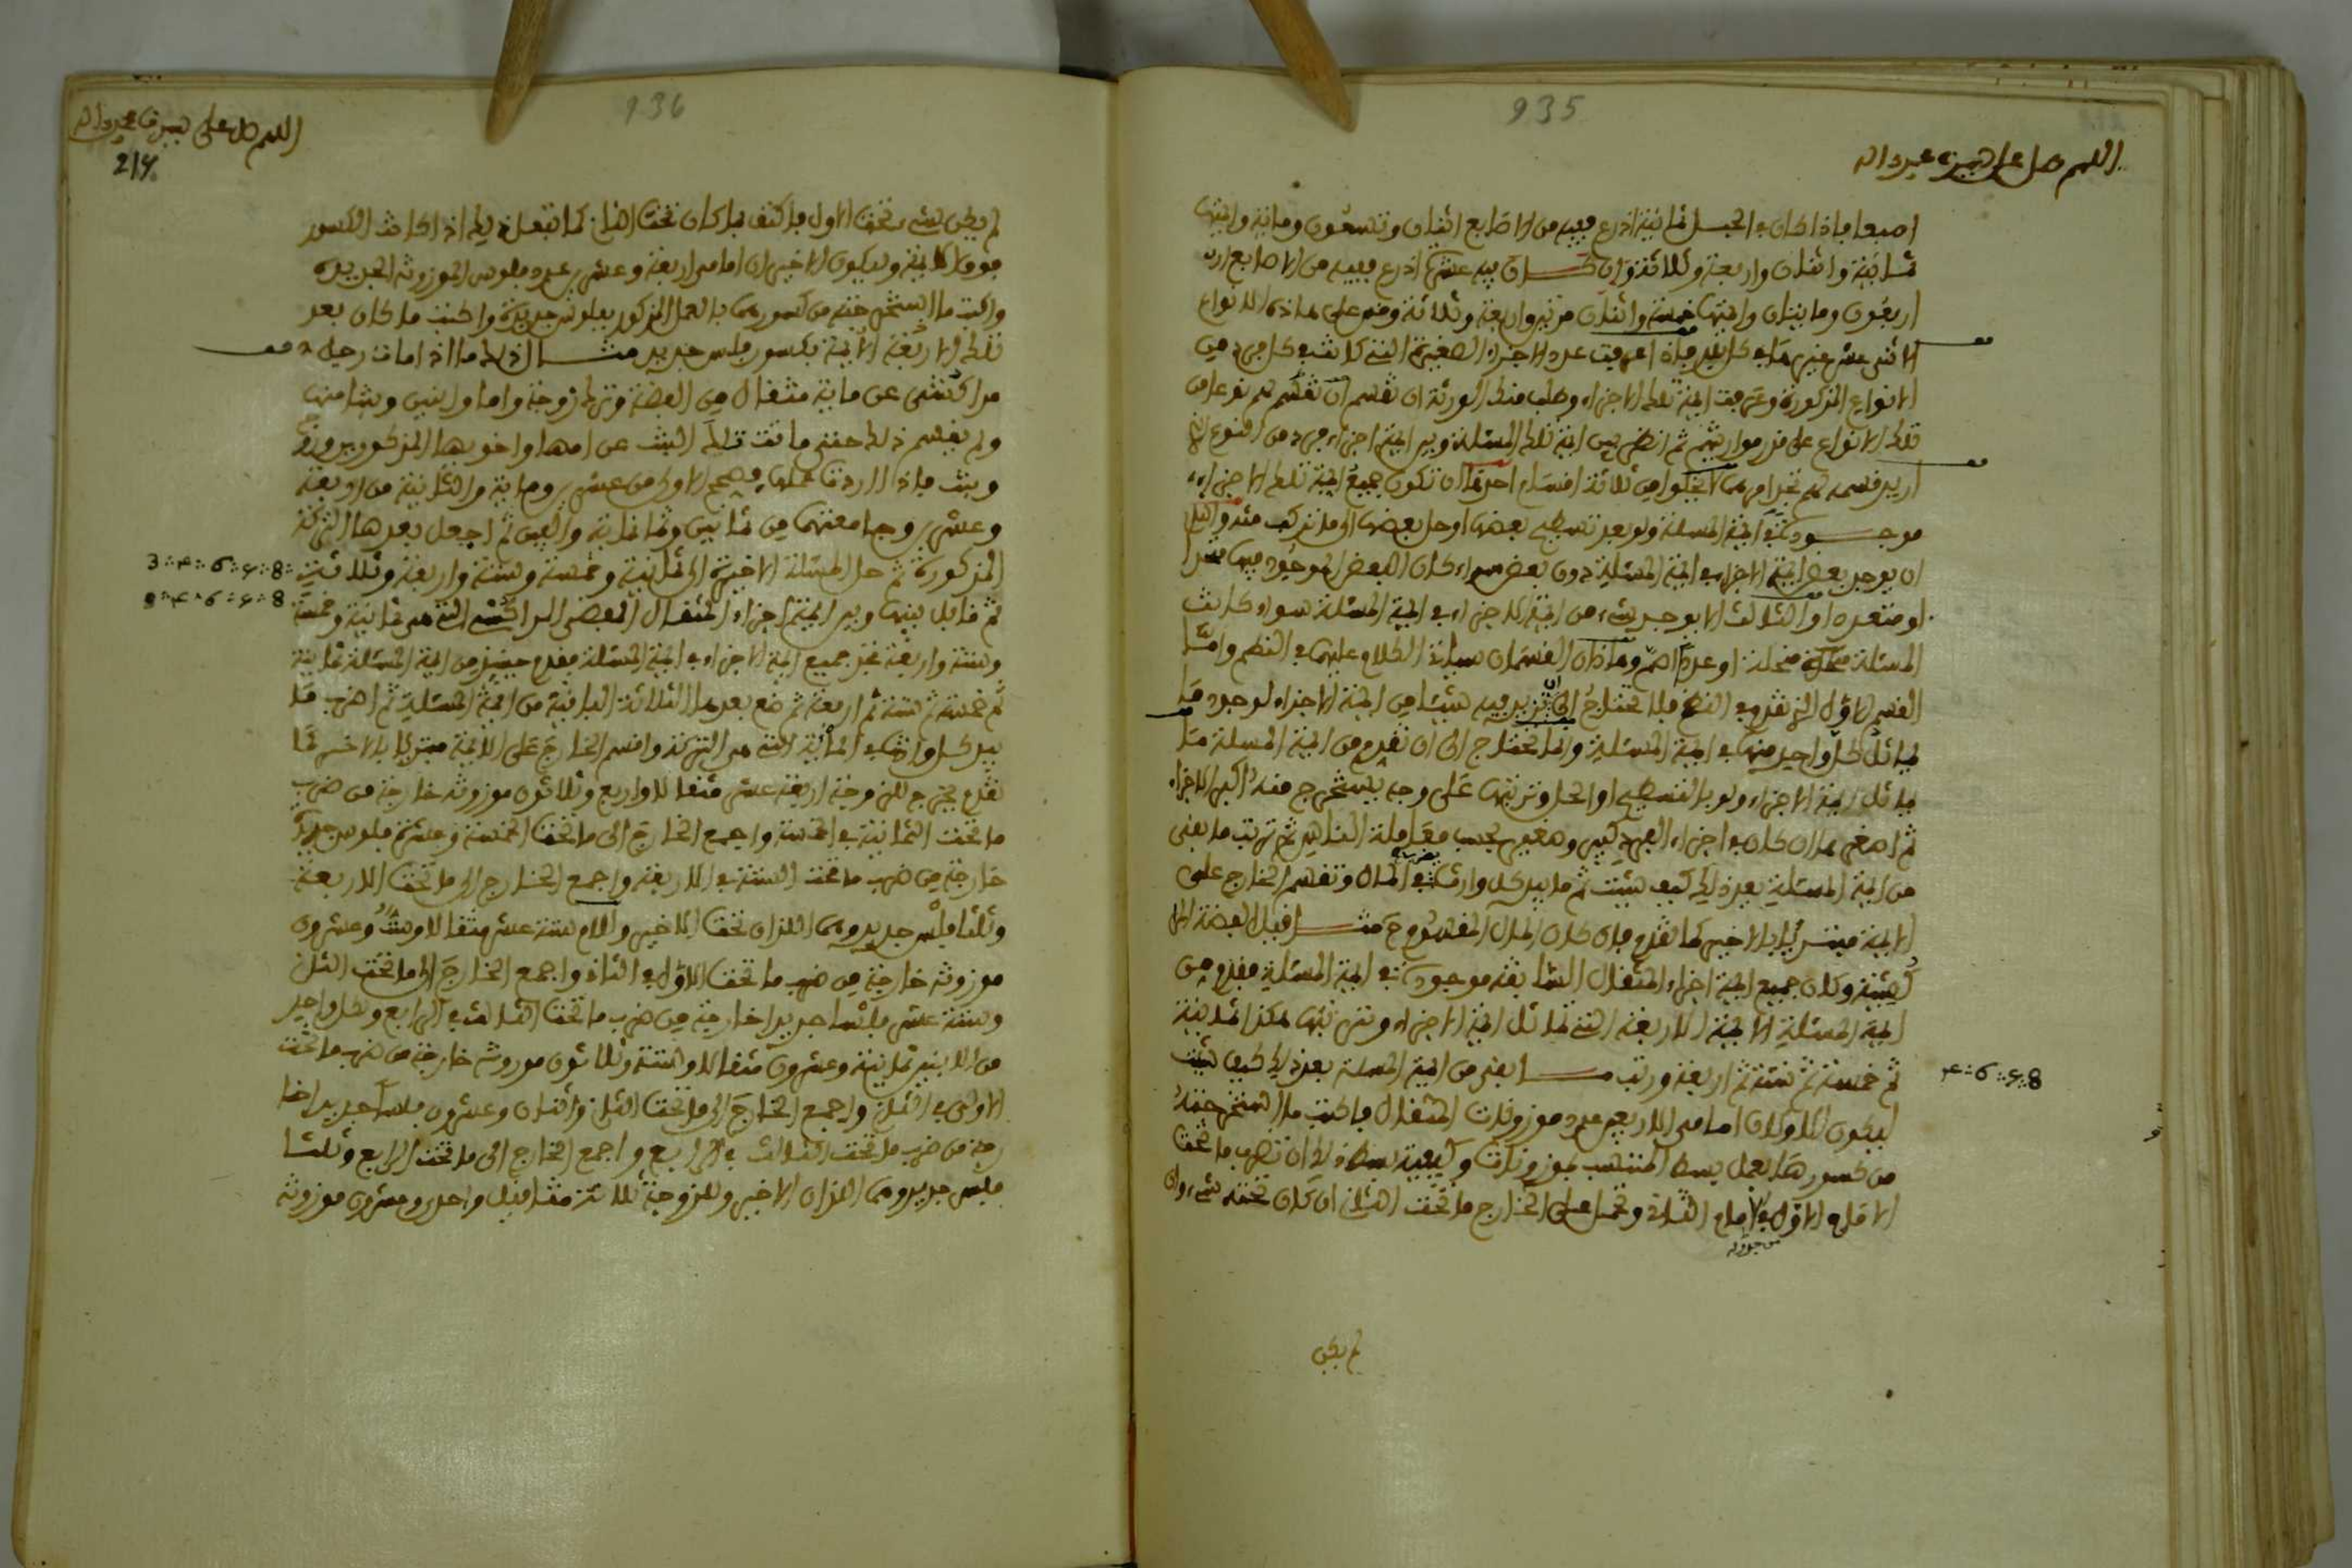 935
اللهم صل على سيدنا محمد وآله
اصبعا فاذا كان في الحبل ثمانية اذرع ففيه من الاصابع اثنان وتسعون ومائة وايمتها
ثمانية واثنان واربعة وثلاثة وان كان فيه عشرة اذرع ففيه من الاصابع
اربعون ومايتان وايمتها خمسة واثنان مرتين واربعة وثلاثة وقس على هاذه الانواع
الاثنى عشر غيرها في كل بلد فاذا عرفت عدد الاجزاء الصغيرة التي كانت في كل فرد من
الانواع المذكورة وعرفت ايمة تلك الاجزاء وطلب منك الورثة ان تقسم لهم نوعا من
تلك الانواع على قدر مواريثهم ثم انظر بين ايمة تلك المسئلة وبين ايمة اجزاء فرد من النوع الذي
اريد قسمه لهم تجد امرهما لا يخلو من ثلاثة اقسام احدها ان تكون جميع ايمة تلك الاجزاء
موجودة في ايمة المسئلة ولو بعد تسطيح بعضها او حل بعضها الى ما تركب منه والثاني
ان يوجد بعض ايمة الاجزاء في ايمة المسئلة دون بعض سواء كان البعض الموجود فيها متحدا
او متعددا والثالث الا يوجد شيء من ايمة الاجزاء في ايمة المسئلة سواء كانت
المسئلة منحلة او عددا اصم وهاذان القسمان سياتي الكلام عليهما في النظم واما
القسم الاول الذي تقدم في النظم فلا تحتاج الى ان تزيد فيه شيئا من ايمة الاجزاء لوجود ما
يماثل كل واحد منها في ايمة المسئلة وانما تحتاج الى ان تقدم من ايمة المسئلة ما
يماثل ايمة الاجزاء ولو بالتسطيح او الحل وترتبها على وجه يستخرج منه اكبر الاجزاء
ثم اصغرها ان كان في اجزاء الفرد كبير وصغير بحسب معاملة الناس ثم ترتب ما بقي
من ايمة المسئلة بعد ذلك كيف شئت ثم تضرب ما بيد كل وارث في المال وتقسم الخارج على
الايمة مبتديا بالاخير كما تقدم فان كان المال المقسوم مثاقيل
وكان جميع ايمة اجزاء المثقال السابقة موجودة في ايمة المسئلة فقدم من
ايمة المسئلة الايمة الاربعة التي تماثل ايمة الاجزاء وترتبها هكذا ثمانية
ثم خمسة ثم ستة ثم اربعة ورتب ما بقي من ايمة المسئلة بعد ذلك كيف شئت
8 : 5 : 6 : 4
ليكون الاولان امامي الاربعين عدد موزونات المثقال فاكتب ما استخرجته
من كسورها بعمل بسط المنتسب موزونات وكيفية بسط ذلك ان تضرب ما تحت
الامام الاول في الامام الثاني وتحمل على الخارج ما تحت الثاني ان كان تحته شيء وان
لم يكن
936
اللهم صل على سيدنا محمد وآله
لم يكن شيء تحت الاول فاكتف بما كان تحت الثاني كما تفعل ذلك اذا كانت الكسور
فوق الايمة وليكون الاخيران امامي اربعة وعشرين عدد فلوس الموزونة الجديدة
واكتب ما استخرجته من كسورهما بالعمل المذكور فلوسا جديدة واكتب ما كان بعد
تلك الاربعة الايمة بكسور فلس جديد مثال ذلك ما اذا مات رجل
مراكشي عن مائة مثقال من الفضة وترك زوجة واما وابنين وبنتا منها
ولم يقسم ذلك حتى ماتت تلك البنت عن امها واخويها المذكورين وزوج
وبنت فاذا اردت عملها فصحح الاولى من عشرين ومائة والثانية من اربعة
وعشرين وجامعتهما من ثمانين وثمانمائة والفين ثم اجعل بعدها التركة
المذكورة ثم حل المسئلة الاخيرة الى ثمانية وخمسة وستة واربعة وثلاثة
8 : 5 : 6 : 4 : 3
ثم قابل بينها وبين ايمة اجزاء المثقال الفضي المراكشي التي هي ثمانية وخمسة
8 : 5 : 6 : 4
وستة واربعة تجد جميع ايمة الاجزاء في ايمة المسئلة فقدم حينئذ من ايمة المسئلة ثمانية
ثم خمسة ثم ستة ثم اربعة ثم ضع بعدها الثلاثة الباقية من ايمة المسئلة ثم اضرب ما
بيد كل وارث في المائة التي هي التركة واقسم الخارج على الايمة مبتديا بالاخير كما
تقدم يخرج للزوجة اربعة عشر مثقالا واربع وثلاثون موزونة خارجة من ضرب
ما تحت الثمانية في الخمسة واجمع الخارج الى ما تحت الخمسة وعشرة فلوس جديدة
خارجة من ضرب ما تحت الستة في الاربعة واجمع الخارج الى ما تحت الاربعة
وثلثا فلس جديد وهما اللذان تحت الاخير وللام ستة عشر مثقالا وست وعشرون
موزونة خارجة من ضرب ما تحت الاول في الثاني واجمع الخارج الى ما تحت الثاني
وستة عشر فلسا جديدا خارجة من ضرب ما تحت الثالث في الرابع ولكل واحد
من الابنين ثمانية وعشرون مثقالا وستة وثلاثون موزونة خارجة من ضرب ما تحت
الاول في الثاني واجمع الخارج الى ما تحت الثاني واثنان وعشرون فلسا جديدا خا
رجة من ضرب ما تحت الثالث في الرابع واجمع الخارج الى ما تحت الرابع وثلثا
فلس جديد وهما اللذان تحت الاخير وللزوج ثلاثة مثاقيل واحدى وعشرون موزونة